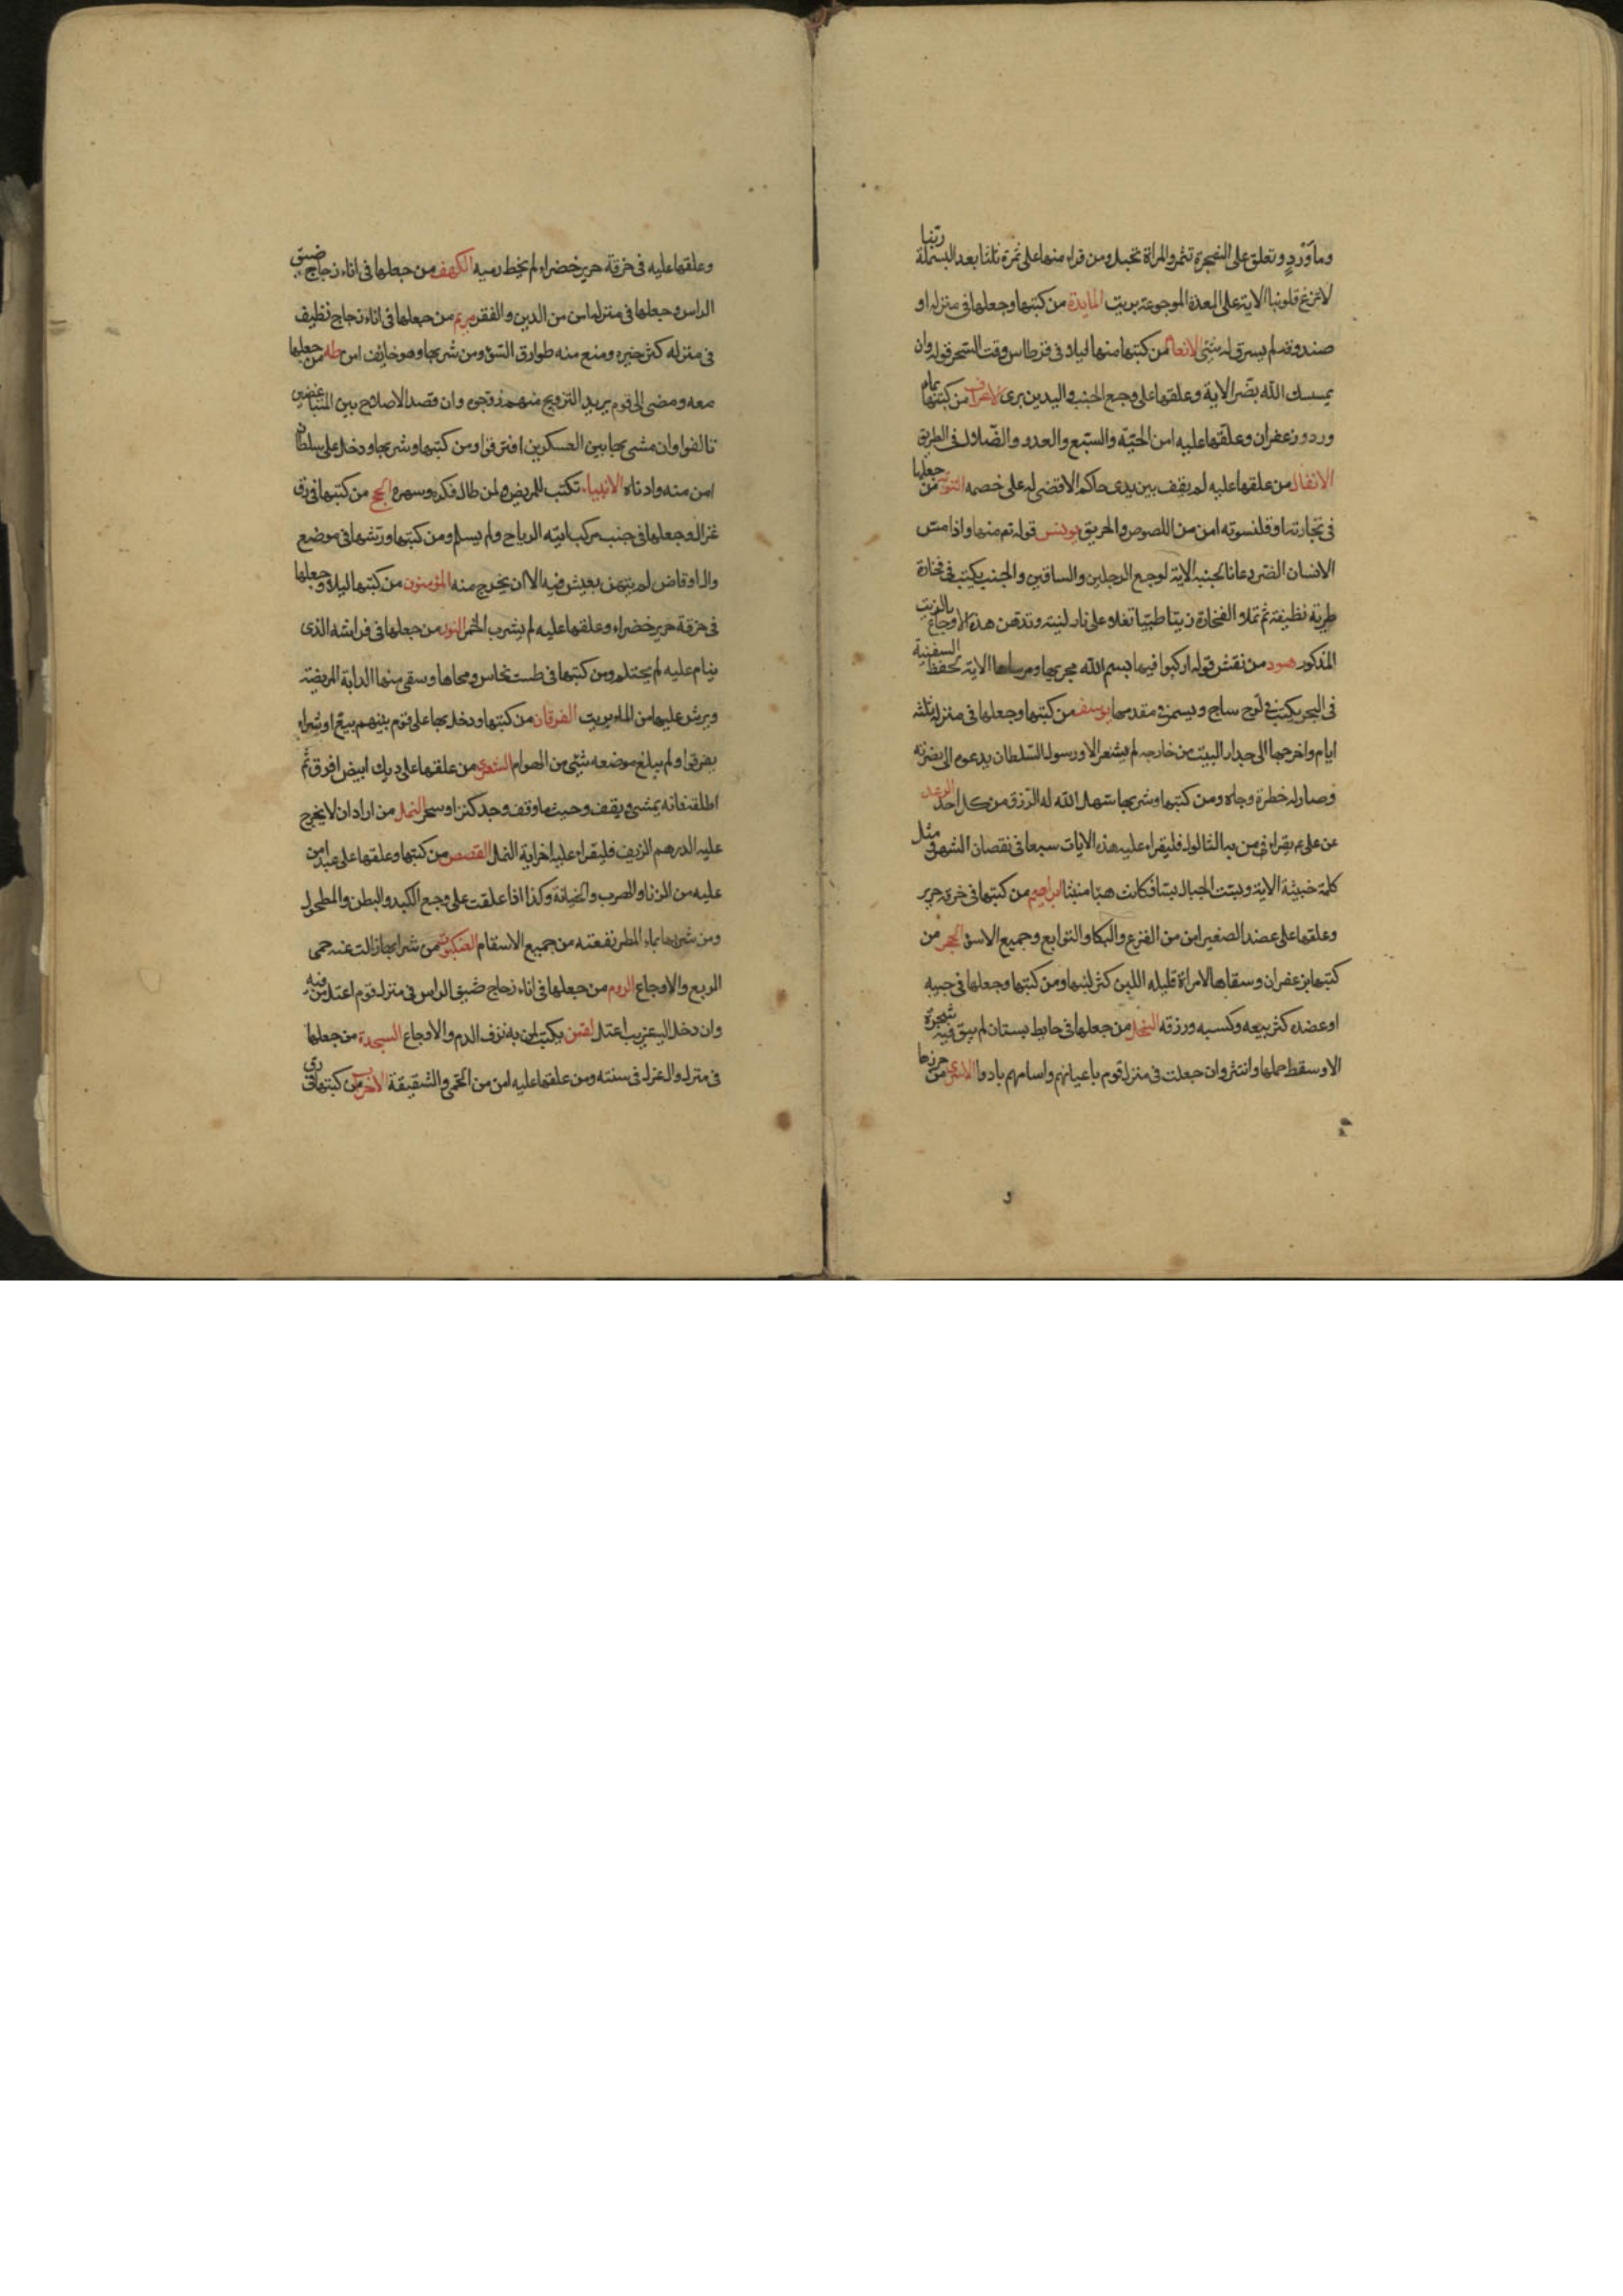 وما وَرْدٍ وتعلق على الشجرة تثمر والمراة تحبل ومن قراء منها على ثمرة ثلثا بعد البسملة ربّنا
لا تزغ قلوبنا الاية على المعدة الموجوعة بريت المايدة من كتبها وجعلها فى منزله او
صندوقه لم يسرق له شئ الانعام من كتبها منها ليلا فى قرطاس وقت السّحر قوله وان
يمسسك الله بضّر الاية وعلقها على وجع الجنب واليدين برئ الاعراف من كتبها بماء
ورد وزعفران وعلقها عليه امن الحيّة والسّبع والعدو والضّلال فى الطريق
الانفال من علقها عليه لم يقف بين يدى حاكم الا قضى له على خصمه التوبة من جعلها
فى تجارته او قلنسوته امن من اللصوص والحريق يونس قوله تم منها واذا مسّ
الانسان الضر دعانا لجنبه الاية لوجع الرجلين والساقين والجنب يكتب فى فخارة
طرية نظيفة ثم تملا الفخارة زيتا طيبا تغلاه على نار لينة وتدهن هذه الاوجاع بالزيت
المذكور هود من نقش قوله اركبوا فيها بسم الله مجريها ومرساها الاية تحفظ السفينة
فى البحر يكتب فى لوح ساج ويسمر فى مقدمها يوسف من كتبها وجعلها فى منزله ثلثة
ايام واخرجها الى جدار البيت من خارجه لم يشعر الا ورسول السّلطان يدعوه الى نصرته
وصار له خطرة وجاه ومن كتبها وشربها سهل الله له الرّزق من كل احد الرعد
عن على عم يقراء فى من به الثالول فليقراء عليه هذه الايات سبعا فى نقصان الشهر مثل
كلمة خبيثة الاية وبست الجبال بسا فكانت هبا منبثا ابراهيم من كتبها فى خرقة حرير
وعلقها على عضد الصغير امن من الفزع والبكا والتوابع وجميع الاسوا الحجر من
كتبها بزعفران وسقاها لامراة قليلة اللبن كثر لبنها ومن كتبها وجعلها فى جيبه
او عضده كثر بيعه وكسبه ورزقه النحل من جعلها فى حايط بستان لم يبق فيه شجرة
الا وسقط حملها وانتثر وان جعلت فى منزل قوم باعيانهم واسامهم بادوا الاسرى من حرزها
وعلقها عليه فى خرقة حرير خضراء لم يخط رميه الكهف من جعلها فى اناء زجاج ضيق
الراس وجعلها فى منزله امن من الدين والفقر مريم من جعلها فى اناء زجاج نظيف
فى منزله كثر خيره ومنع منه طوارق السّؤ ومن شربها وهو خايف امن طه من جعلها
معه ومضى الى قوم يريد التزويج منهم زوّجوه وان قصد الاصلاح بين المتباغضين
تالفوا وان مشى بها بين العسكرين افترقوا ومن كتبها وشربها ودخل على سلطان
امن منه وادناه الانبياء تكتب للمريض ولمن طال فكره وسهره الحج من كتبها فى رق
غزال وجعلها فى جنب مركب اتته الرياح ولم يسلم ومن كتبها ورشها فى موضع
وال او قاض لم يتهن بعيش فيه الا ان يخرج منه المؤمنون من كتبها ليلا وجعلها
فى خرقة حرير خضراء وعلقها عليه لم يشرب الخمر النور من جعلها فى فراشه الذى
ينام عليه لم يحتلم ومن كتبها فى طست نحاس ومحاها وسقى منها الدابة المريضة
ويرش عليها من الماء بريت الفرقان من كتبها ودخل بها على قوم بينهم بيع او شراء
يفرقوا ولم يبلغ موضعه شئ من الهوام الشعرى من علقها على ديك ابيض افرق ثم
اطلقه فانه يمشى ويقف وحيث ما وقف وجد كنزا وسحر النمل من اراد ان لا يخرج
عليه الدرهم الزيف فليقراء عليه اخر اية النمل القصص من كتبها وعلقها على عبد امن
عليه من الزنا والهرب والخيانة وكذا اذا علقت على وجع الكبد والبطن والمطحول
ومن شربها بماء المطر نفعته من جميع الاسقام العنكبوت من شرابها زالت عنه حمى
الربع والاوجاع الروم من جعلها فى اناء زجاج ضيق الراس فى منزل قوم اعتل من فيه
وان دخل اليه غريب اعتل لقمن يكتب لمن به نزف الدم والاوجاع السجدة من جعلها
فى منزل وال عزل فى سنته ومن علقها عليه امن من الحمّى والشقيقة الاحزاب من كتبها فى رق